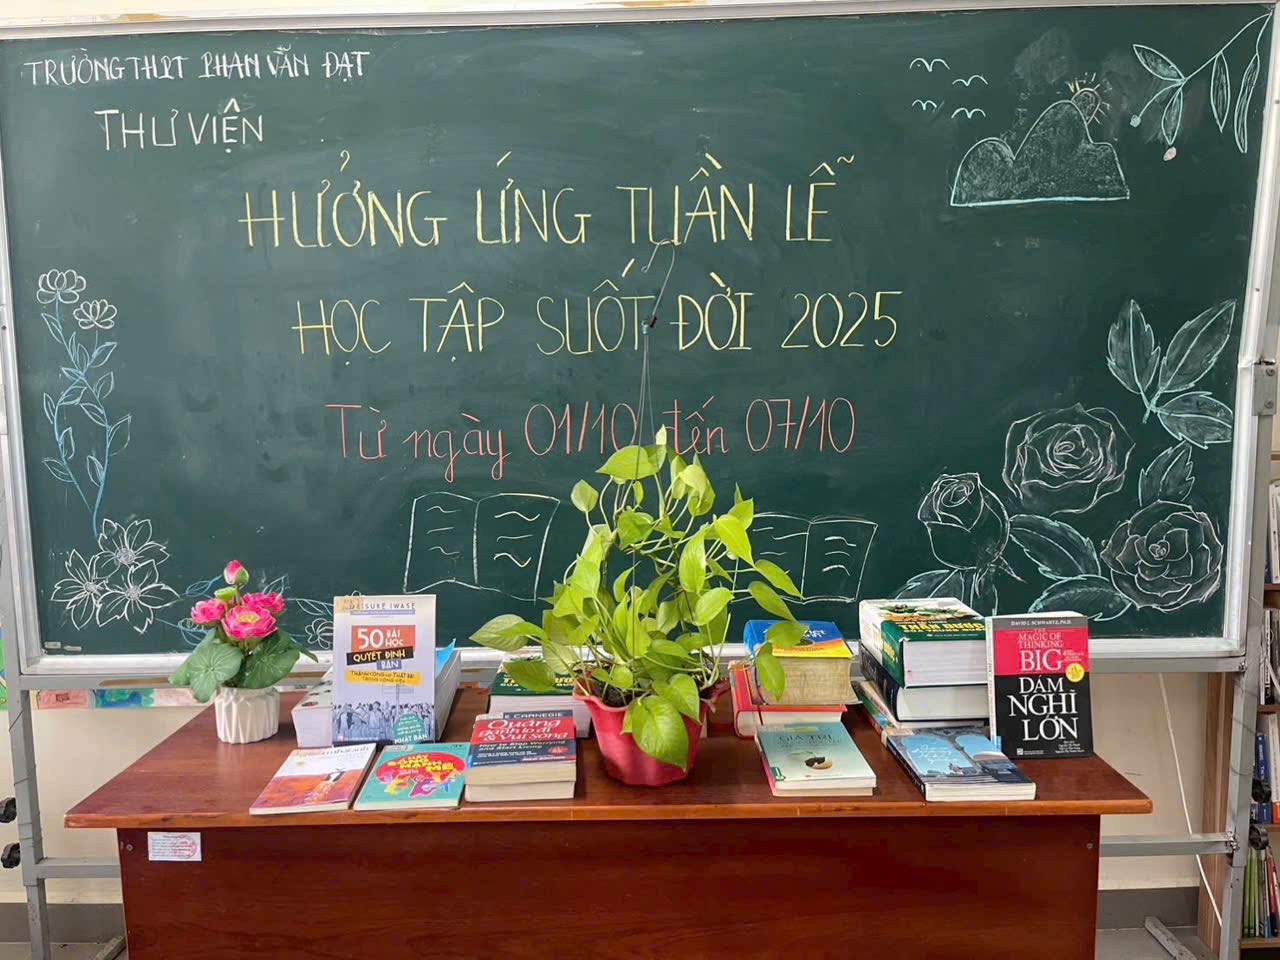 TRƯỜNG THPT PHAN VĂN ĐẠT
THƯ VIỆN
HƯỞNG ỨNG TUẦN LỄ
HỌC TẬP SUỐT ĐỜI 2025
Từ ngày 01/10 đến 07/10
50 BÀI HỌC
QUYẾT ĐỊNH
BẠN
THÀNH CÔNG HAY THẤT BẠI
TRONG CÔNG VIỆC
NHẬT BẢN
CARNEGIE
Quẳng
gánh lo đi
& Vui sống
How to Stop Worrying
and Start Living
GIÁ TRỊ
DAVID J. SCHWARTZ, PH.D.
MAGIC OF
THINKING
BIG
DÁM
NGHĨ
LỚN